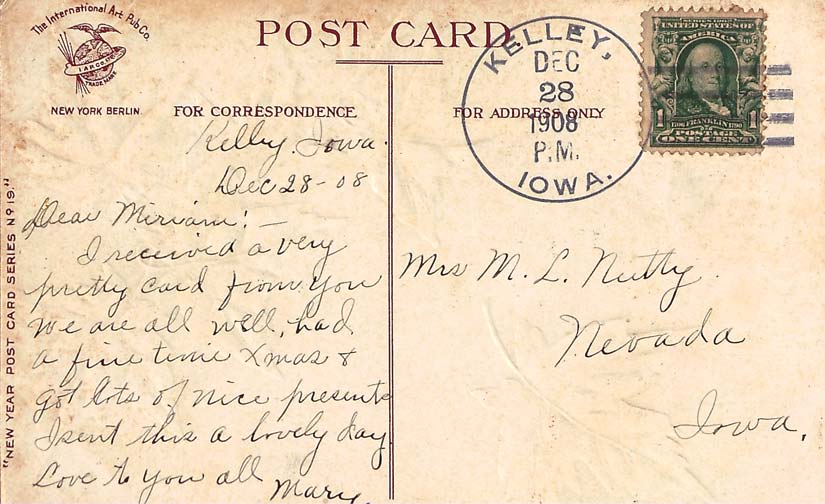 The International Art Pub Co.
I. A. P. Co.
TRADE MARK
NEW YORK BERLIN.
POST CARD
FOR CORRESPONDENCE
FOR ADDRESS ONLY
"NEW YEAR POST CARD SERIES Nº 19."
KELLEY,
DEC
28
1908
P.M.
IOWA.
SERIES 1902
UNITED STATES OF
AMERICA
1 FRANKLIN 1
POSTAGE
ONE CENT
Kelley. Iowa.
Dec 28-08
Dear Miriam! –
I received a very
pretty card from you
We are all well, had
a fine time Xmas &
got lots of nice presents
Isent this a lovely day
Love to you all
Mary.
Mrs M. L. Nutty.
Nevada
Iowa.